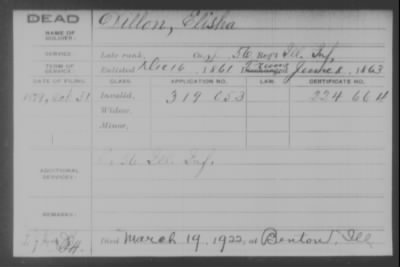 DEAD
Dillon, Elisha
NAME OF SOLDIER:
SERVICE:
Late rank, Co. 56 Reg't Ill. Inf.
TERM OF SERVICE:
Enlisted Dec 16, 1861 Discharged June 8, 1863
DATE OF FILING. CLASS. APPLICATION NO. LAW. CERTIFICATE NO.
Oct. 31 Invalid, 319 053 224 664
Widow,
Minor,
ADDITIONAL SERVICES:
Ill. Inf.
REMARKS:
Died March 19, 1922, at Benton, Ill